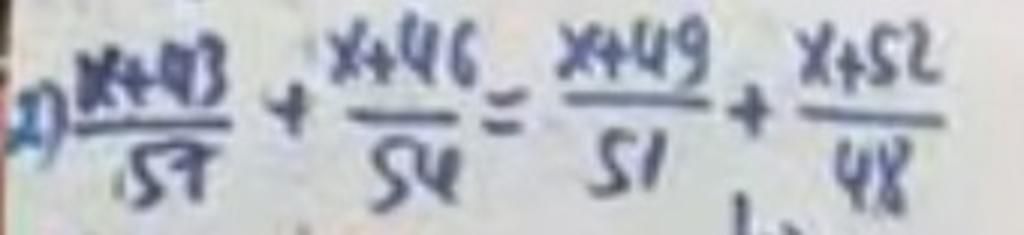 2) \frac{x+43}{57} + \frac{x+46}{54} = \frac{x+49}{51} + \frac{x+52}{48}